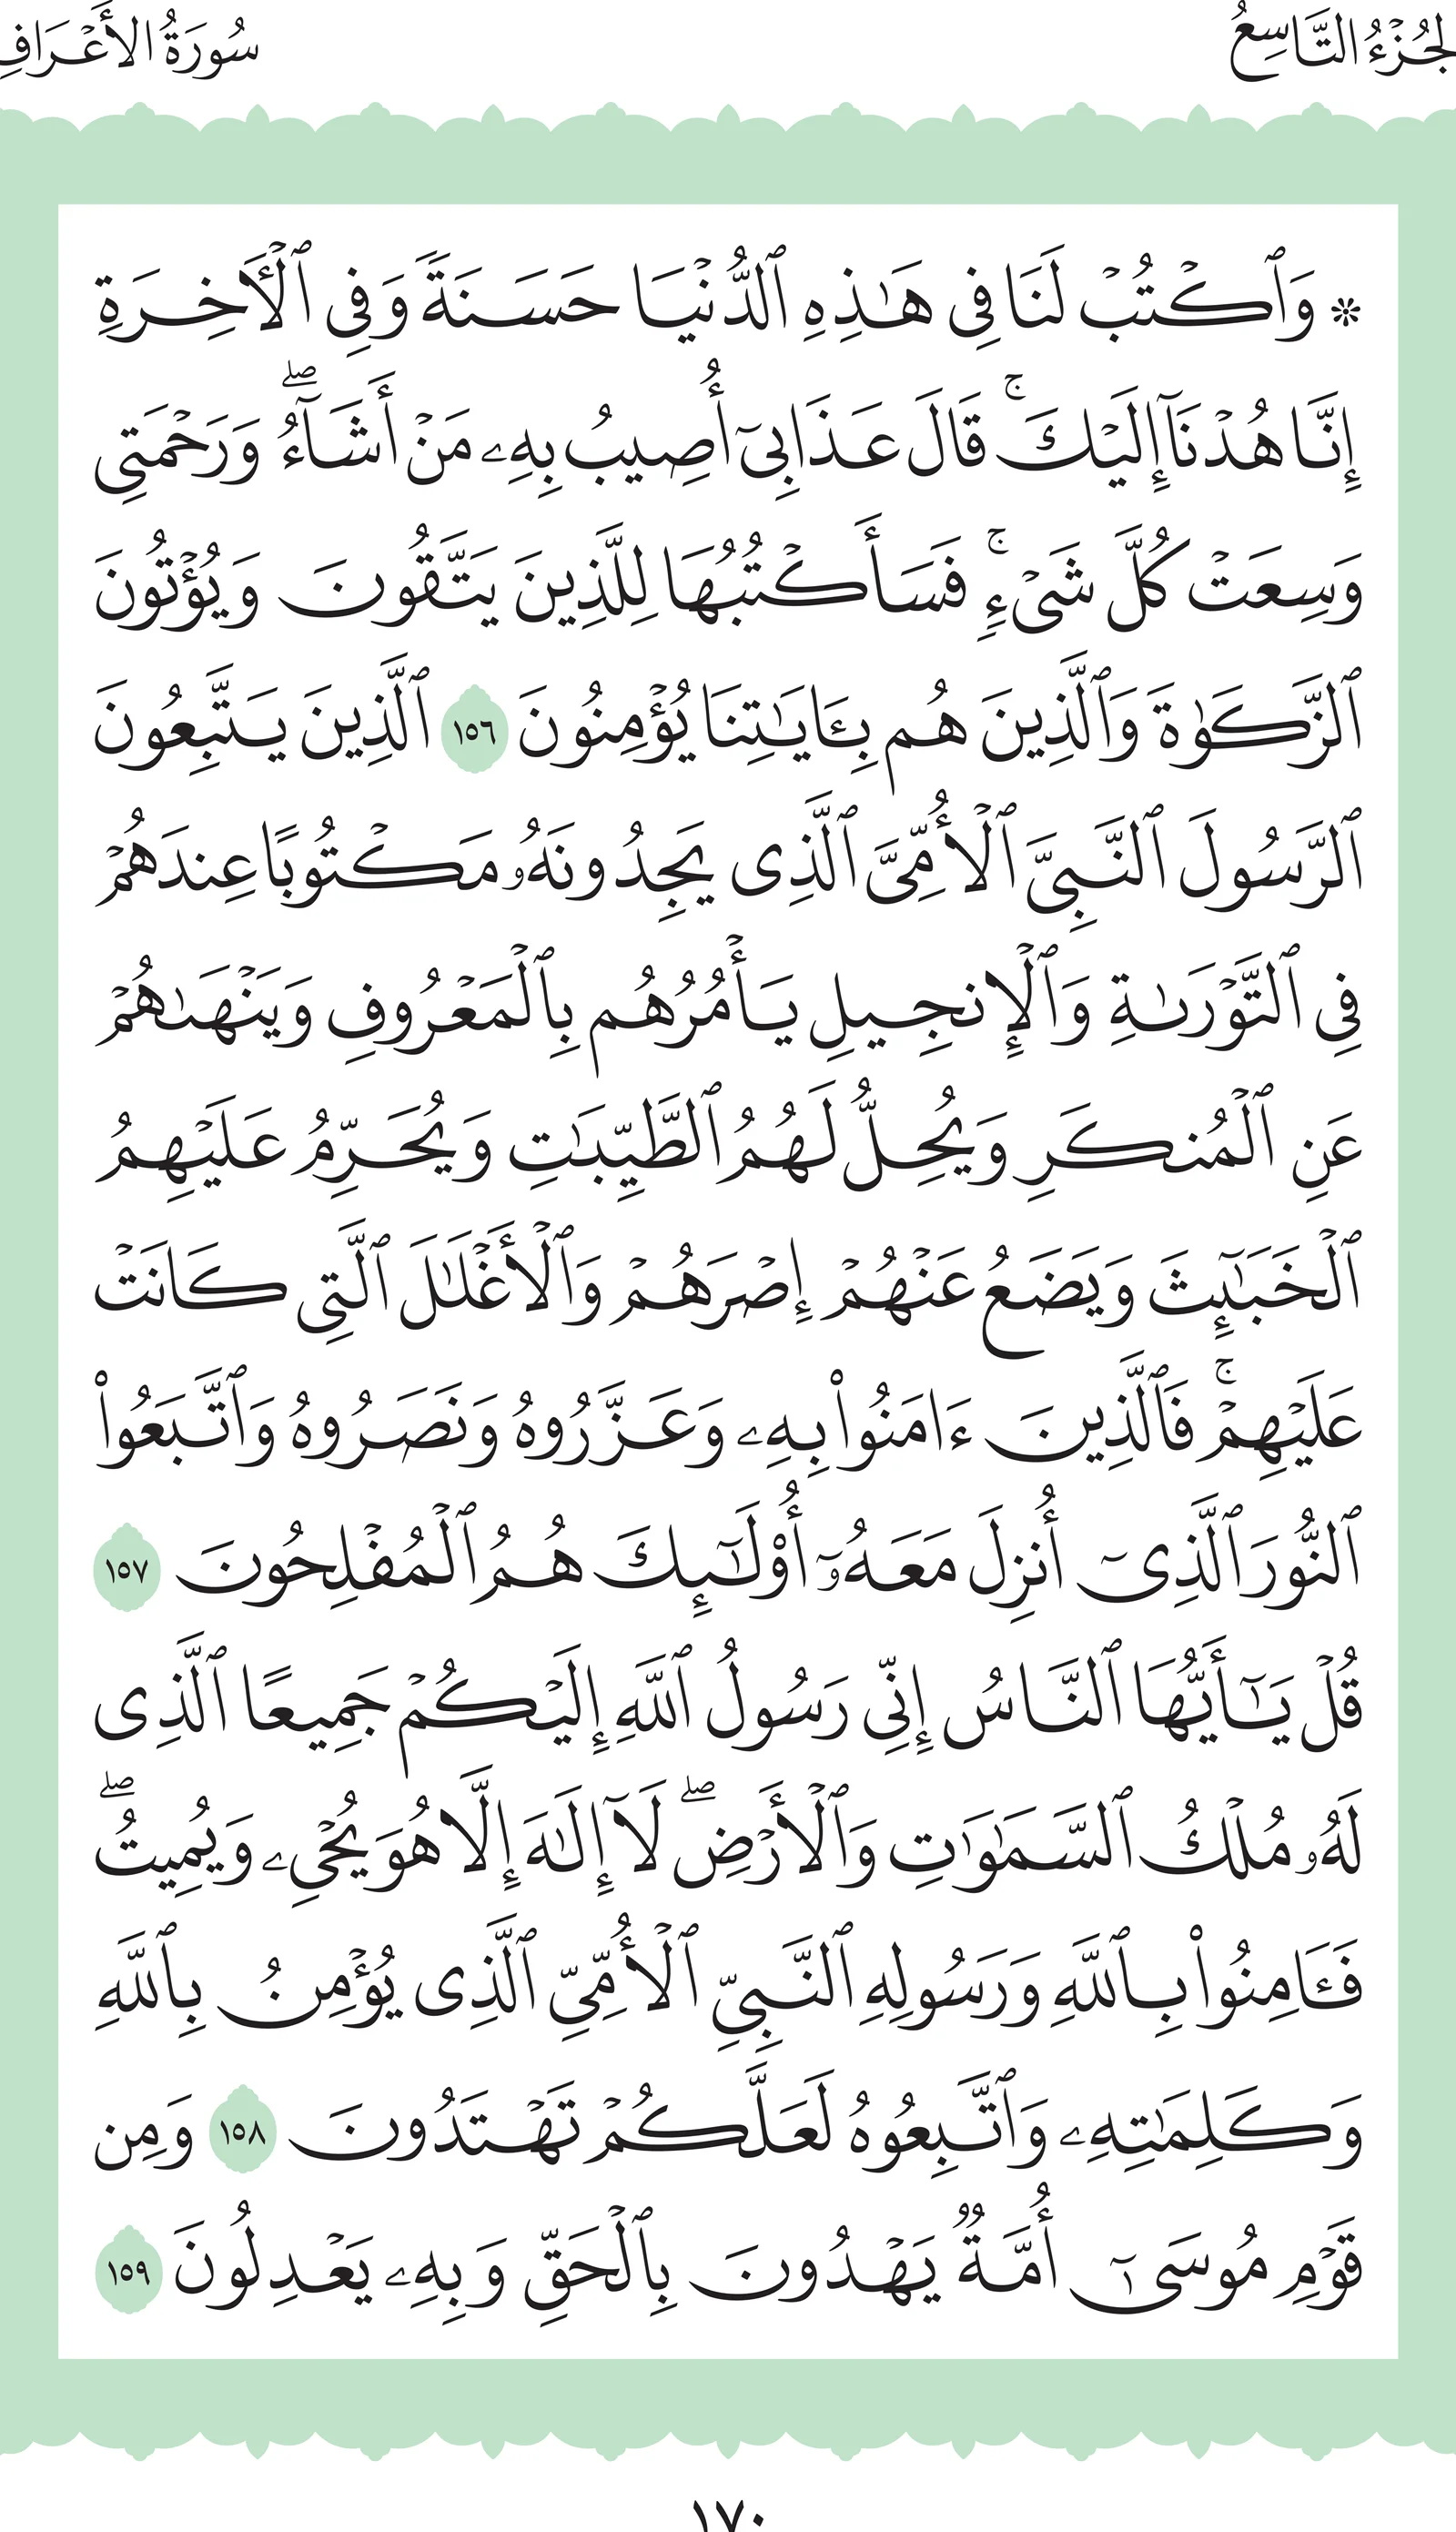 الجُزْءُ التَّاسِعُ
سُورَةُ الأَعْرَافِ
۞ وَٱكۡتُبۡ لَنَا فِي هَٰذِهِ ٱلدُّنۡيَا حَسَنَةٗ وَفِي ٱلۡأٓخِرَةِ
إِنَّا هُدۡنَآ إِلَيۡكَۚ قَالَ عَذَابِيٓ أُصِيبُ بِهِۦ مَنۡ أَشَآءُۖ وَرَحۡمَتِي
وَسِعَتۡ كُلَّ شَيۡءٖۚ فَسَأَكۡتُبُهَا لِلَّذِينَ يَتَّقُونَ وَيُؤۡتُونَ
ٱلزَّكَوٰةَ وَٱلَّذِينَ هُم بِـَٔايَٰتِنَا يُؤۡمِنُونَ ١٥٦ ٱلَّذِينَ يَتَّبِعُونَ
ٱلرَّسُولَ ٱلنَّبِيَّ ٱلۡأُمِّيَّ ٱلَّذِي يَجِدُونَهُۥ مَكۡتُوبًا عِندَهُمۡ
فِي ٱلتَّوۡرَىٰةِ وَٱلۡإِنجِيلِ يَأۡمُرُهُم بِٱلۡمَعۡرُوفِ وَيَنۡهَىٰهُمۡ
عَنِ ٱلۡمُنكَرِ وَيُحِلُّ لَهُمُ ٱلطَّيِّبَٰتِ وَيُحَرِّمُ عَلَيۡهِمُ
ٱلۡخَبَٰٓئِثَ وَيَضَعُ عَنۡهُمۡ إِصۡرَهُمۡ وَٱلۡأَغۡلَٰلَ ٱلَّتِي كَانَتۡ
عَلَيۡهِمۡۚ فَٱلَّذِينَ ءَامَنُواْ بِهِۦ وَعَزَّرُوهُ وَنَصَرُوهُ وَٱتَّبَعُواْ
ٱلنُّورَ ٱلَّذِيٓ أُنزِلَ مَعَهُۥٓ أُوْلَٰٓئِكَ هُمُ ٱلۡمُفۡلِحُونَ ١٥٧
قُلۡ يَٰٓأَيُّهَا ٱلنَّاسُ إِنِّي رَسُولُ ٱللَّهِ إِلَيۡكُمۡ جَمِيعًا ٱلَّذِي
لَهُۥ مُلۡكُ ٱلسَّمَٰوَٰتِ وَٱلۡأَرۡضِۖ لَآ إِلَٰهَ إِلَّا هُوَ يُحۡيِۦ وَيُمِيتُۖ
فَـَٔامِنُواْ بِٱللَّهِ وَرَسُولِهِ ٱلنَّبِيِّ ٱلۡأُمِّيِّ ٱلَّذِي يُؤۡمِنُ بِٱللَّهِ
وَكَلِمَٰتِهِۦ وَٱتَّبِعُوهُ لَعَلَّكُمۡ تَهۡتَدُونَ ١٥٨ وَمِن
قَوۡمِ مُوسَىٰٓ أُمَّةٞ يَهۡدُونَ بِٱلۡحَقِّ وَبِهِۦ يَعۡدِلُونَ ١٥٩
١٧٠